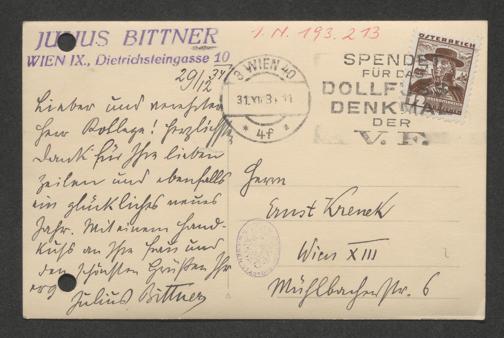 JULIUS BITTNER
WIEN IX., Dietrichsteingasse 10
I. N. 193.213
29/12 34
Lieber und verehrter
Herr Kollege! Herzlichsten
Dank für Ihre lieben
Zeilen und ebenfalls
ein glückliches neues
Jahr. Mit einem Hand-
kuß an Ihre Frau und
den schönsten Grüßen Ihr
Julius Bittner
WIEN 40
31.XII.3
* 4f *
SPENDE
FÜR DA
DOLLFU
DENKMA
DER
V. F.
ÖSTERREICH
Herrn
Ernst Krenek
Wien XIII
Mühlbacherstr. 6